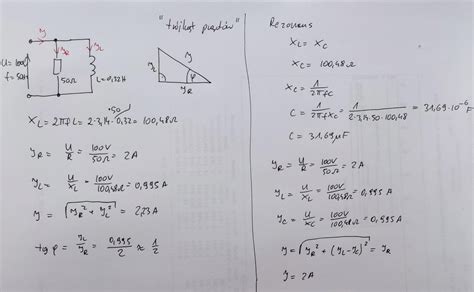 "trójkąt prądów"
U=100V
f=50Hz
I
I_R
I_L
50Ω
L=0,32H
I_L
φ
I_R
X_L = 2πfL = 2·3,14·50·0,32 = 100,48Ω
I_R = U/R = 100V/50Ω = 2A
I_L = U/X_L = 100V/100,48Ω = 0,995A
I = √(I_R² + I_L²) = 2,23A
tg φ = I_L/I_R = 0,995/2 ≈ 1/2
Rezonans
X_L = X_C
X_C = 100,48Ω
X_C = 1/(2πfC)
C = 1/(2πfX_C) = 1/(2·3,14·50·100,48) = 31,69·10⁻⁶ F
C = 31,69μF
I_R = U/R = 100V/50Ω = 2A
I_L = U/X_L = 100V/100,48Ω = 0,995A
I_C = U/X_C = 100V/100,48Ω = 0,995A
I = √(I_R² + (I_L - I_C)²) = I_R
I = 2A